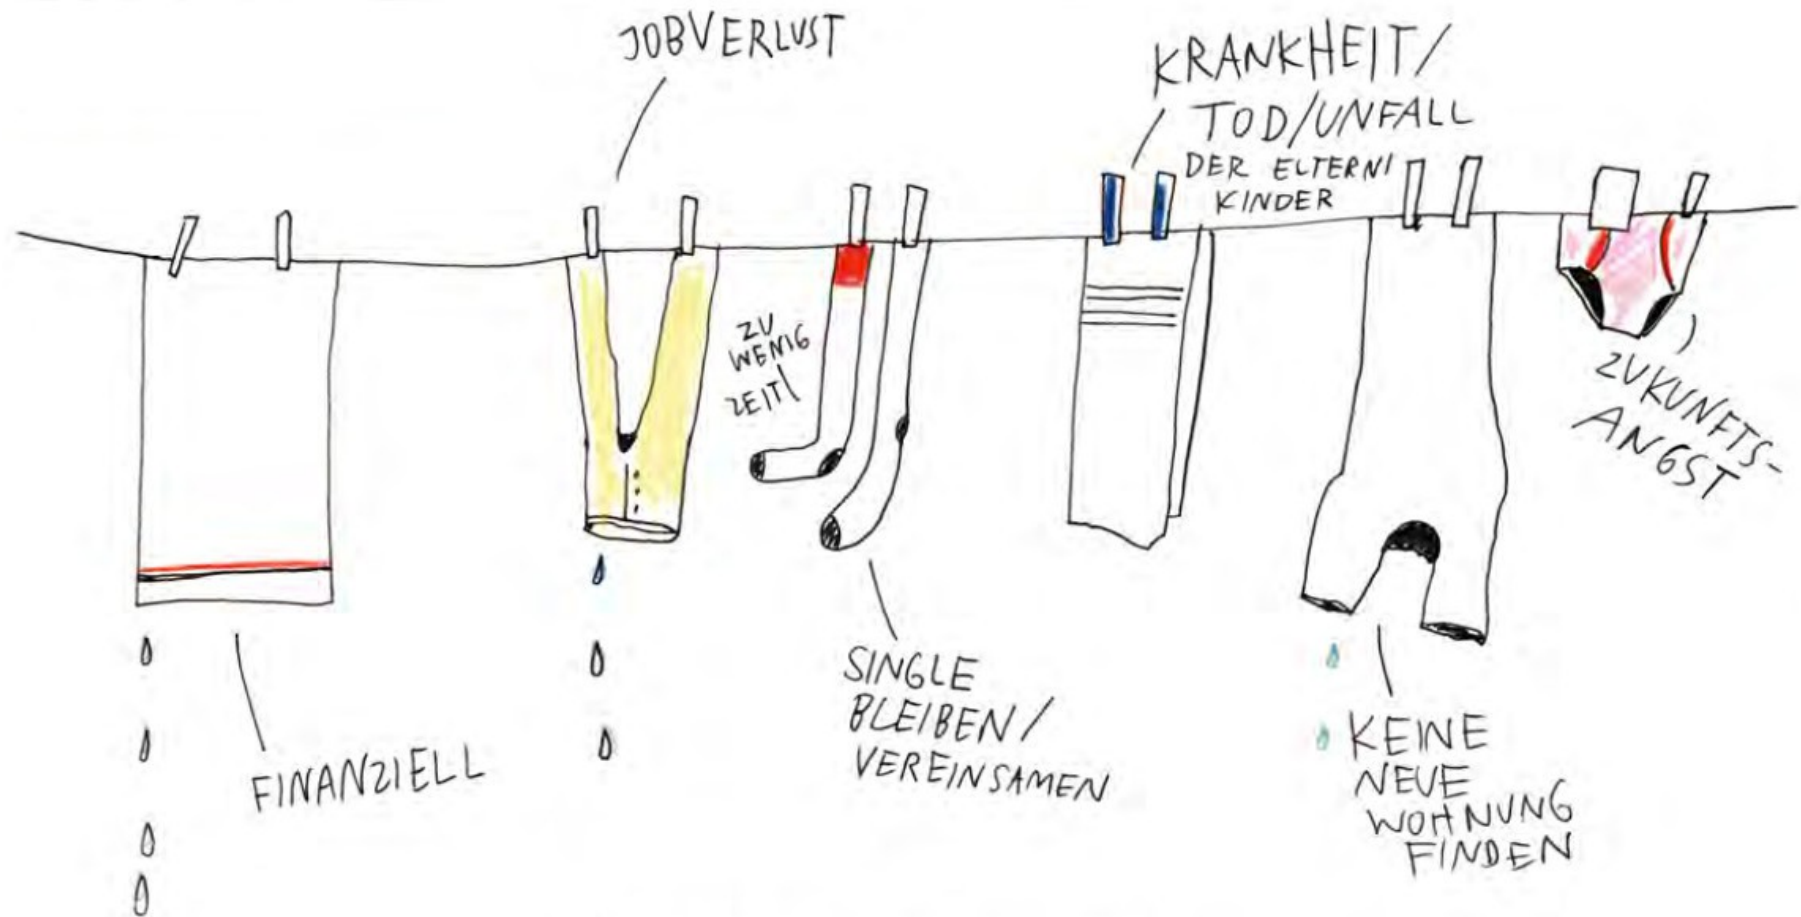 JOBVERLUST
KRANKHEIT/
TOD/UNFALL
DER ELTERN/
KINDER
ZU
WENIG
ZEIT
ZUKUNFTS-
ANGST
FINANZIELL
SINGLE
BLEIBEN/
VEREINSAMEN
KEINE
NEUE
WOHNUNG
FINDEN